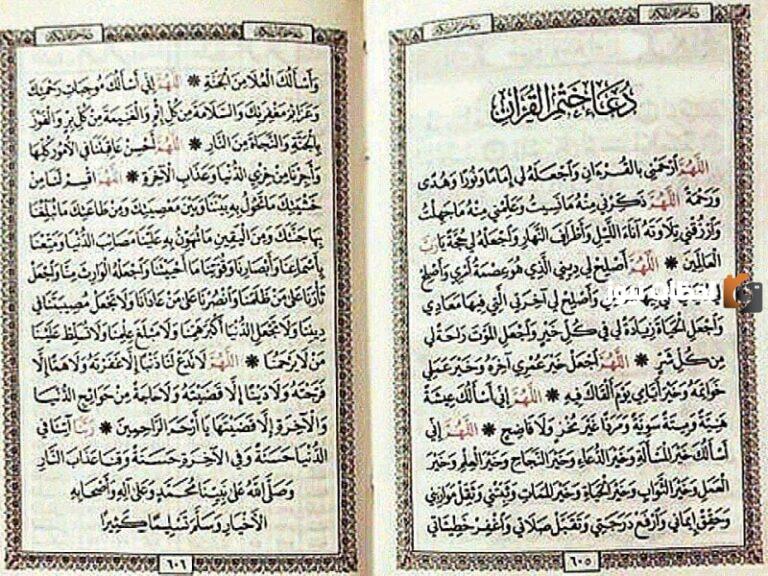 دُعَاءُ خَتْمِ الْقُرْآنِ
اللَّهُمَّ ارْحَمْنِي بِالْقُرْءَانِ وَاجْعَلْهُ لِي إِمَامًا وَنُورًا وَهُدًى
وَرَحْمَةً اللَّهُمَّ ذَكِّرْنِي مِنْهُ مَا نَسِيتُ وَعَلِّمْنِي مِنْهُ مَا جَهِلْتُ
وَارْزُقْنِي تِلَاوَتَهُ آنَاءَ اللَّيْلِ وَأَطْرَافَ النَّهَارِ وَاجْعَلْهُ لِي حُجَّةً يَا رَبَّ
الْعَالَمِينَ * اللَّهُمَّ أَصْلِحْ لِي دِينِي الَّذِي هُوَ عِصْمَةُ أَمْرِي وَأَصْلِحْ
وَأَصْلِحْ لِي آخِرَتِي الَّتِي فِيهَا مَعَادِي
وَاجْعَلِ الْحَيَاةَ زِيَادَةً لِي فِي كُلِّ خَيْرٍ وَاجْعَلِ الْمَوْتَ رَاحَةً لِي
مِنْ كُلِّ شَرٍّ * اللَّهُمَّ اجْعَلْ خَيْرَ عُمْرِي آخِرَهُ وَخَيْرَ عَمَلِي
خَوَاتِمَهُ وَخَيْرَ أَيَّامِي يَوْمَ أَلْقَاكَ فِيهِ * اللَّهُمَّ إِنِّي أَسْأَلُكَ عِيشَةً
هَنِيَّةً وَمِيتَةً سَوِيَّةً وَمَرَدًّا غَيْرَ مُخْزٍ وَلَا فَاضِحٍ * اللَّهُمَّ إِنِّي
أَسْأَلُكَ خَيْرَ الْمَسْأَلَةِ وَخَيْرَ الدُّعَاءِ وَخَيْرَ النَّجَاحِ وَخَيْرَ الْعِلْمِ وَخَيْرَ
الْعَمَلِ وَخَيْرَ الثَّوَابِ وَخَيْرَ الْحَيَاةِ وَخَيْرَ الْمَمَاتِ وَثَبِّتْنِي وَثَقِّلْ مَوَازِينِي
وَحَقِّقْ إِيمَانِي وَارْفَعْ دَرَجَتِي وَتَقَبَّلْ صَلَاتِي وَاغْفِرْ خَطِيئَاتِي
٦٠٥
وَأَسْأَلُكَ الْعُلَا مِنَ الْجَنَّةِ * اللَّهُمَّ إِنِّي أَسْأَلُكَ مُوجِبَاتِ رَحْمَتِكَ
وَعَزَائِمَ مَغْفِرَتِكَ وَالسَّلَامَةَ مِنْ كُلِّ إِثْمٍ وَالْغَنِيمَةَ مِنْ كُلِّ بِرٍّ وَالْفَوْزَ
بِالْجَنَّةِ وَالنَّجَاةَ مِنَ النَّارِ * اللَّهُمَّ أَحْسِنْ عَاقِبَتَنَا فِي الْأُمُورِ كُلِّهَا
وَأَجِرْنَا مِنْ خِزْيِ الدُّنْيَا وَعَذَابِ الْآخِرَةِ * اللَّهُمَّ اقْسِمْ لَنَا مِنْ
خَشْيَتِكَ مَا تَحُولُ بِهِ بَيْنَنَا وَبَيْنَ مَعْصِيَتِكَ وَمِنْ طَاعَتِكَ مَا تُبَلِّغُنَا
بِهَا جَنَّتَكَ وَمِنَ الْيَقِينِ مَا تُهَوِّنُ بِهِ عَلَيْنَا مَصَائِبَ الدُّنْيَا وَمَتِّعْنَا
بِأَسْمَاعِنَا وَأَبْصَارِنَا وَقُوَّتِنَا مَا أَحْيَيْتَنَا وَاجْعَلْهُ الْوَارِثَ مِنَّا وَاجْعَلْ
ثَأْرَنَا عَلَى مَنْ ظَلَمَنَا وَانْصُرْنَا عَلَى مَنْ عَادَانَا وَلَا تَجْعَلْ مُصِيبَتَنَا فِي
دِينِنَا وَلَا تَجْعَلِ الدُّنْيَا أَكْبَرَ هَمِّنَا وَلَا مَبْلَغَ عِلْمِنَا وَلَا تُسَلِّطْ عَلَيْنَا
مَنْ لَا يَرْحَمُنَا * اللَّهُمَّ لَا تَدَعْ لَنَا ذَنْبًا إِلَّا غَفَرْتَهُ وَلَا هَمًّا إِلَّا
فَرَّجْتَهُ وَلَا دَيْنًا إِلَّا قَضَيْتَهُ وَلَا حَاجَةً مِنْ حَوَائِجِ الدُّنْيَا
وَالْآخِرَةِ إِلَّا قَضَيْتَهَا يَا أَرْحَمَ الرَّاحِمِينَ * رَبَّنَا آتِنَا فِي
الدُّنْيَا حَسَنَةً وَفِي الْآخِرَةِ حَسَنَةً وَقِنَا عَذَابَ النَّارِ
وَصَلَّى اللَّهُ عَلَى نَبِيِّنَا مُحَمَّدٍ وَعَلَى آلِهِ وَأَصْحَابِهِ
الْأَخْيَارِ وَسَلَّمَ تَسْلِيمًا كَثِيرًا
٦٠٦